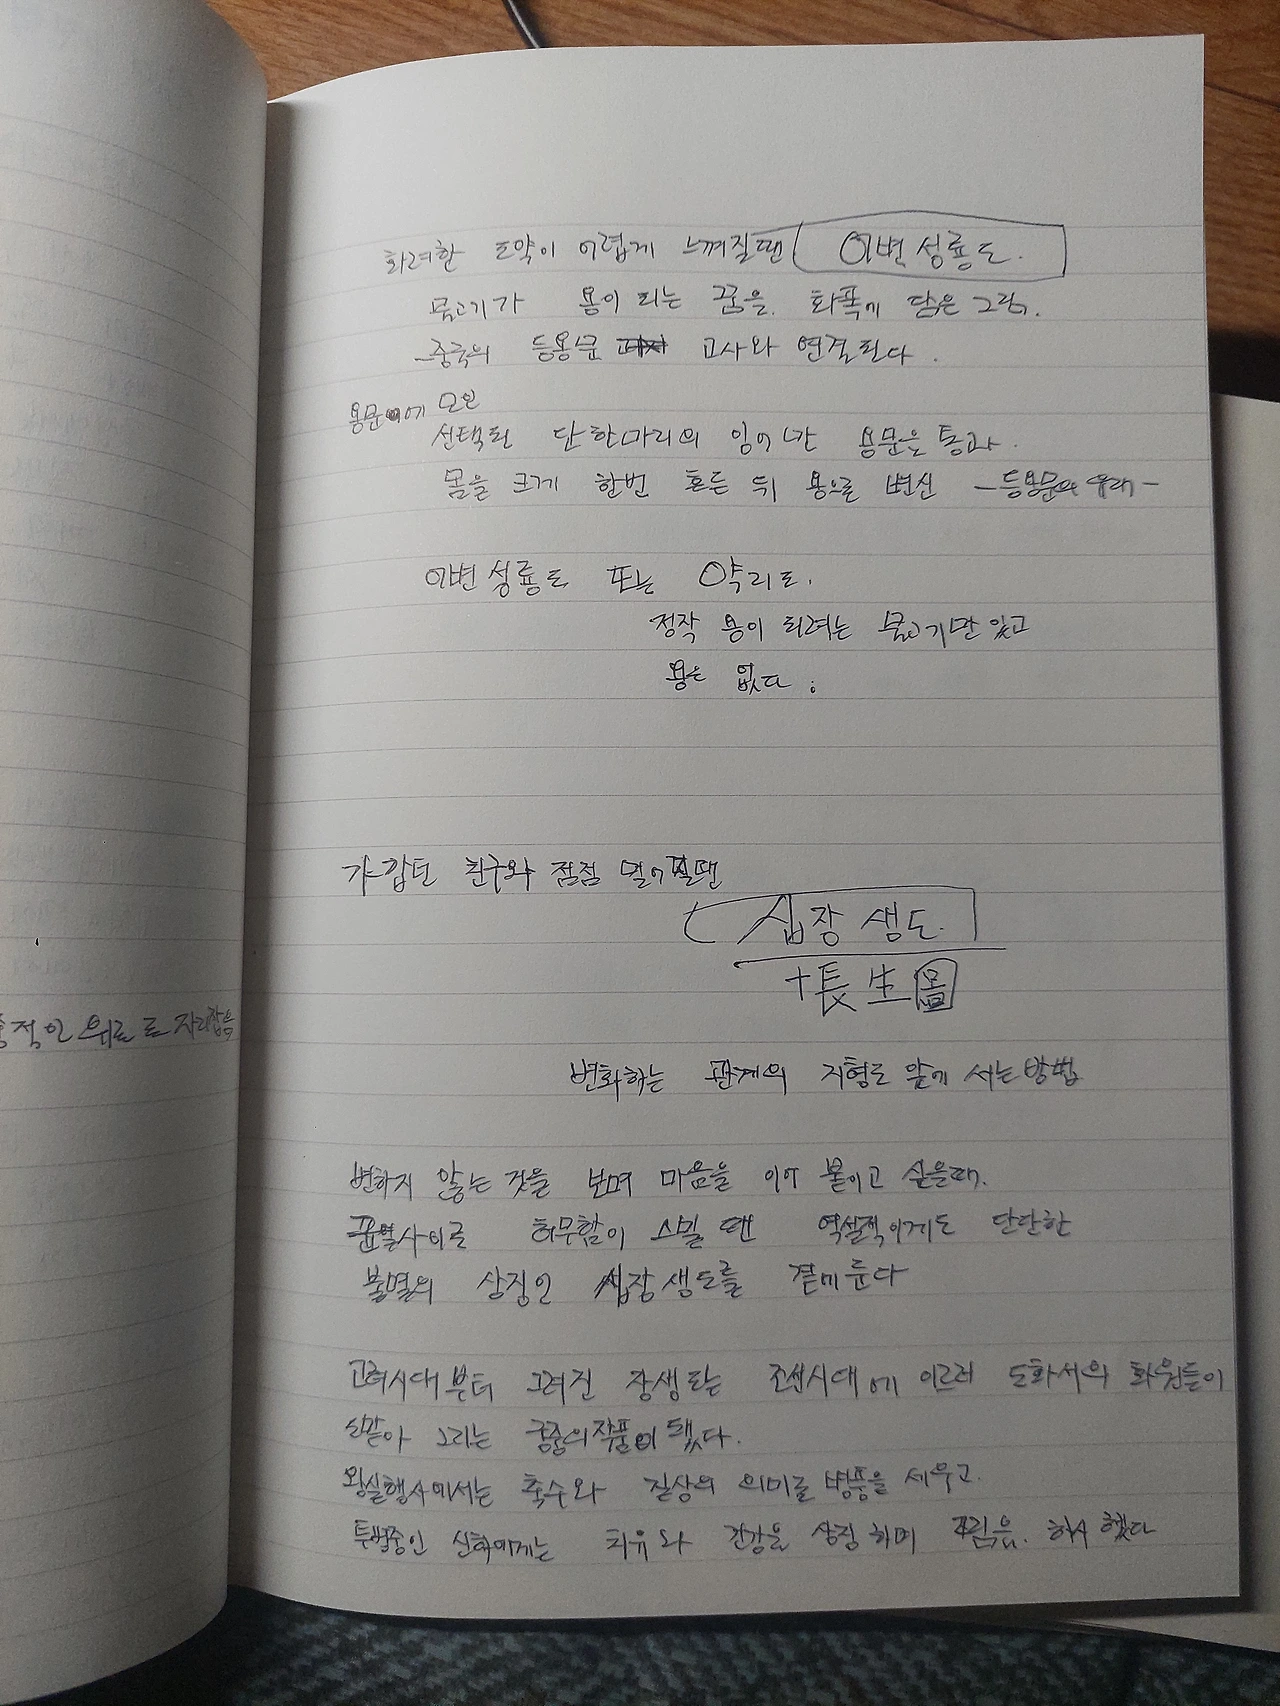 화려한 도약이 어렵게 느껴질땐 어변성룡도.
물고기가 용이 되는 꿈을 화폭에 담은 그림.
중국의 등용문 고사와 연결된다.
용문에 모인
선택된 단 한마리의 잉어만 용문을 통과.
몸을 크게 한번 흔든 뒤 용으로 변신 -등용문의 유래-
어변성룡도 또는 약리도.
정작 용이 되려는 물고기만 있고
용은 없다.
가깝던 친구와 점점 멀어질땐
십장생도.
十長生圖
변화하는 관계의 지형도 앞에 서는 방법
변하지 않는 것을 보며 마음을 이어 붙이고 싶을때.
균열사이로 허무함이 스밀 땐 역설적이게도 단단한
불멸의 상징인 십장생도를 곁에 둔다
고려시대부터 그려진 장생도는 조선시대에 이르러 도화서의 화원들이
도맡아 그리는 궁중의 작품이 됐다.
왕실행사에서는 축수와 길상의 의미로 병풍을 세우고
투병중인 신하에게는 치유와 건강을 상징하며 그림을 하사했다
적인 위로로 자리잡음